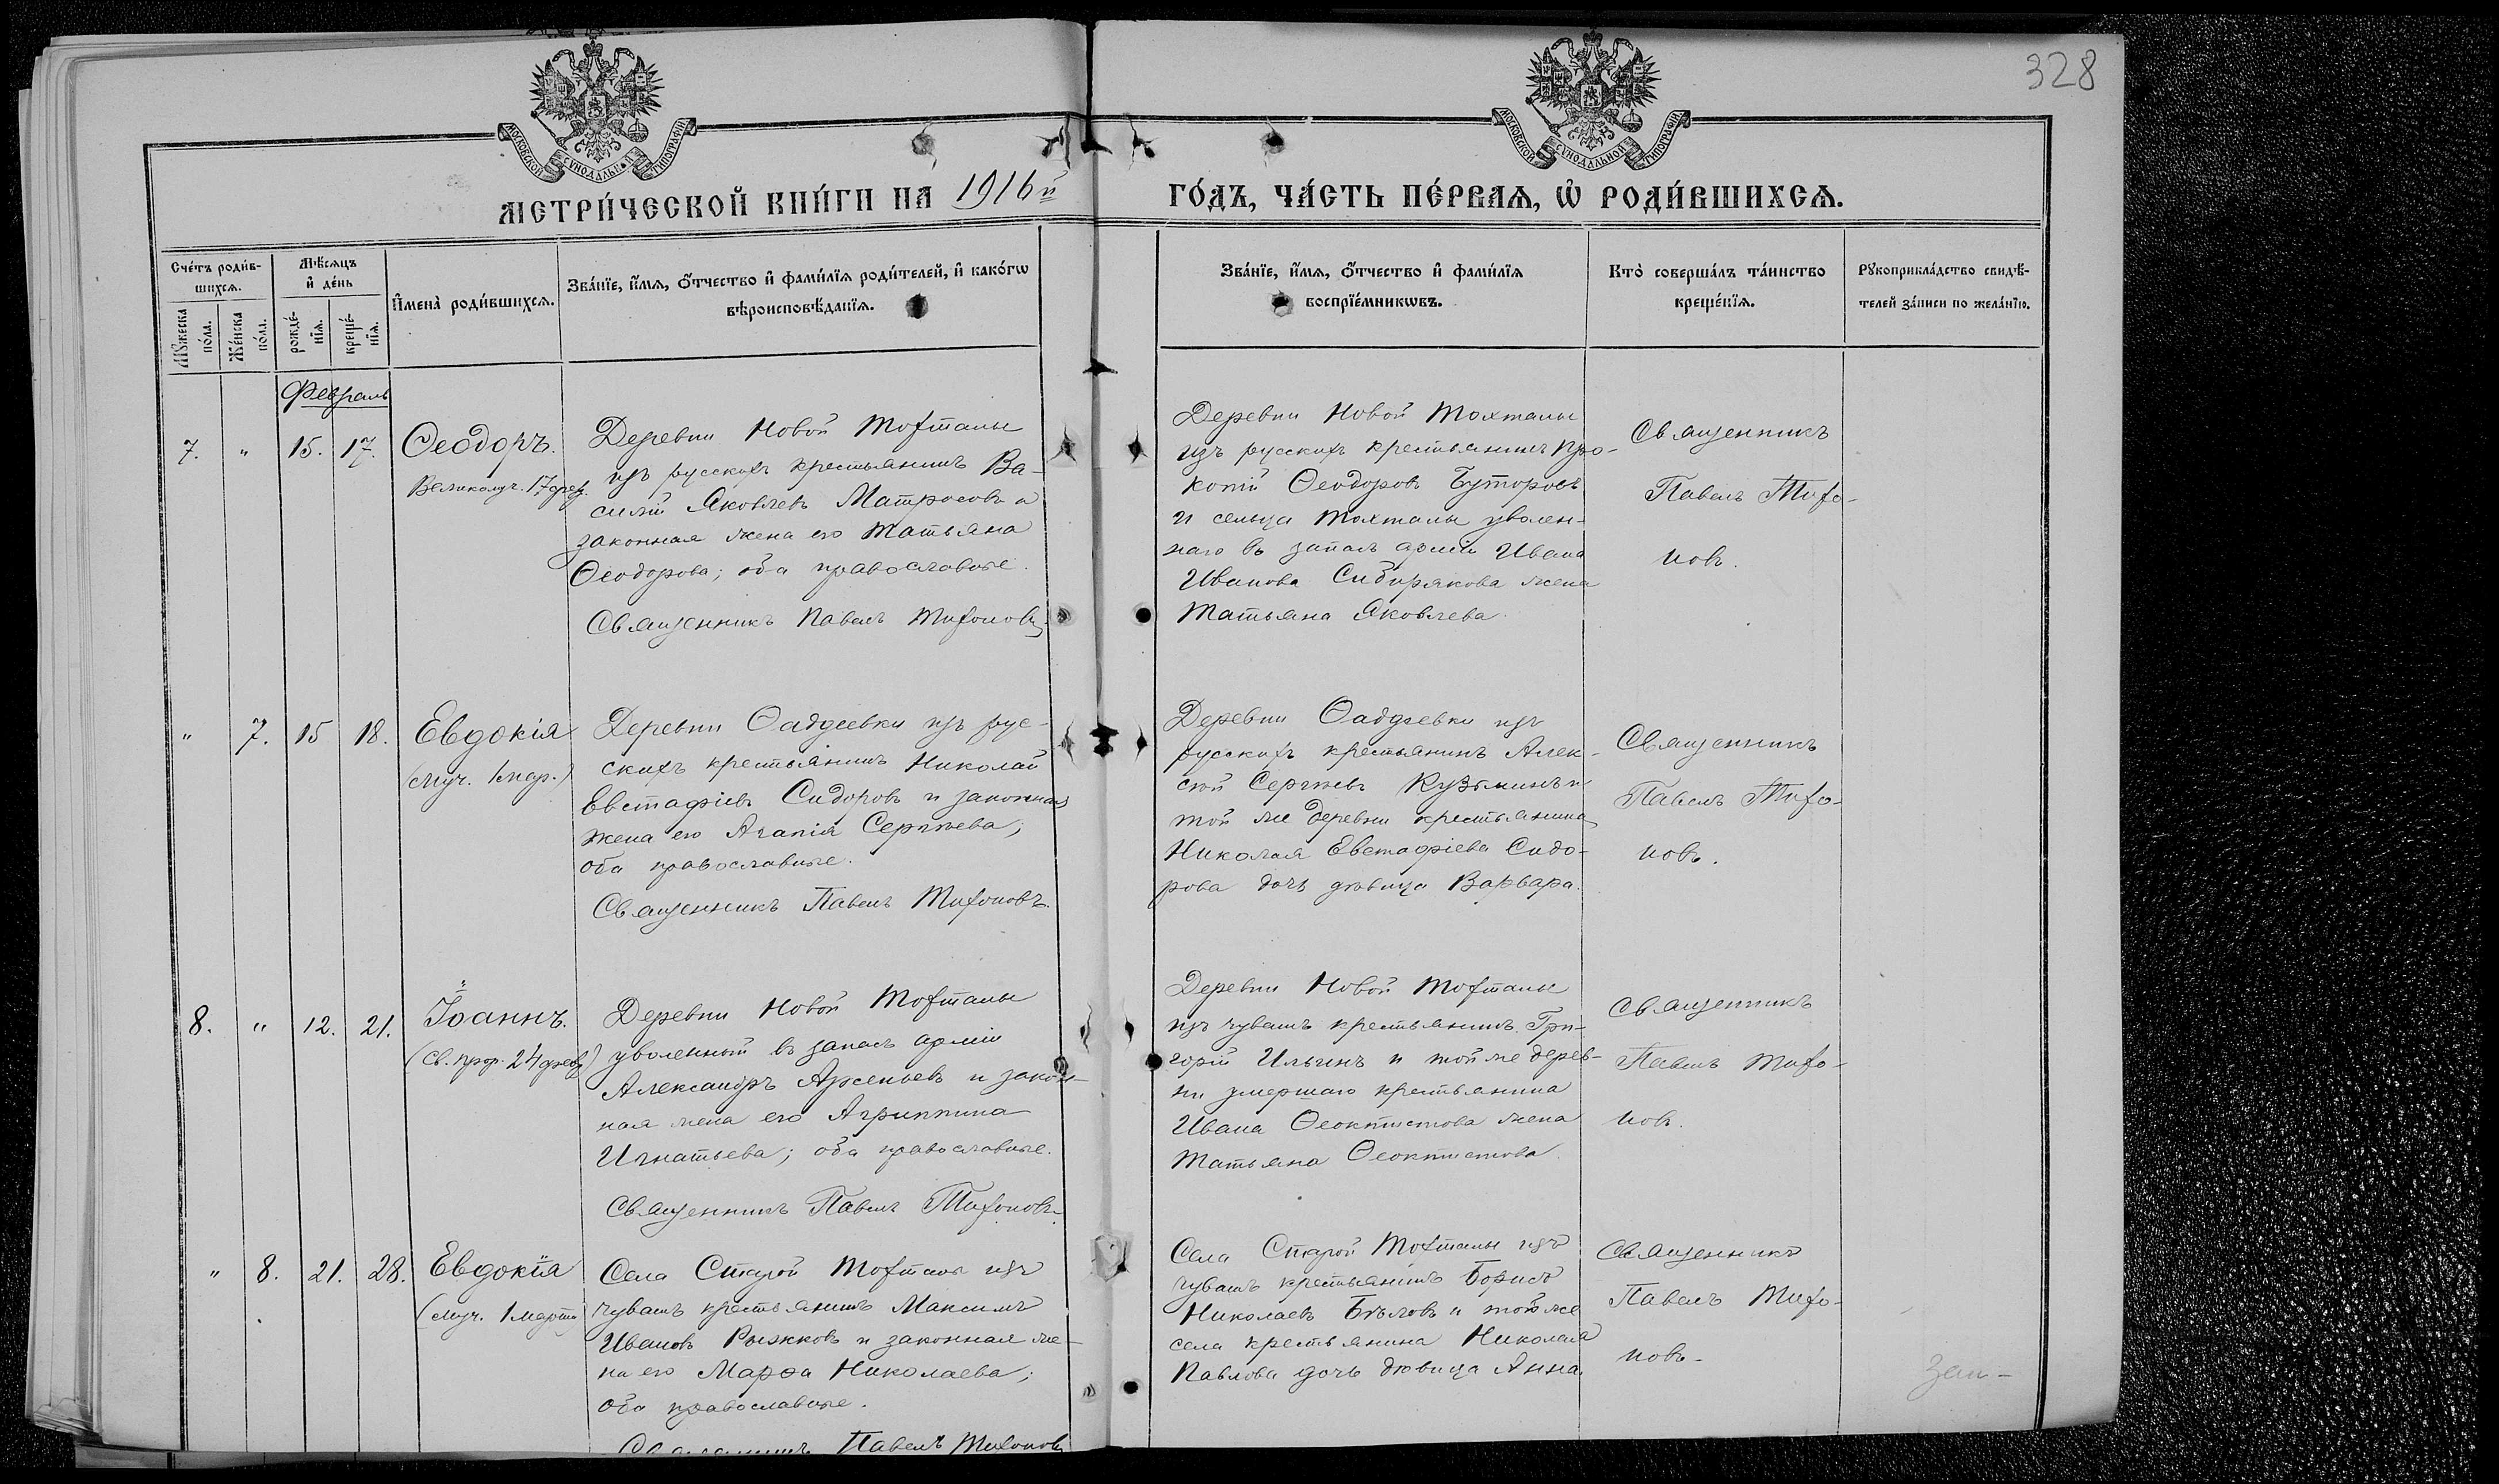 328
МОСКОВСКОЙ СѴНОДАЛЬНОЙ ТИПОГРАФІИ
МОСКОВСКОЙ СѴНОДАЛЬНОЙ ТИПОГРАФІИ
МЕТРИ́ЧЕСКОЙ КНИ́ГИ НА 1916й
ГО́ДЪ, ЧА́СТЬ ПЕ́РВАѦ, Ѡ҆ РОДИ́ВШИХСѦ.
Сче́тъ роди́в-
шихсѧ.
Мꙋ́жеска
по́ла.
Же́нска
по́ла.
Мѣ́сѧцъ
и҆ де́нь
рожде́-
нїѧ.
креще́-
нїѧ.
И҆мена̀ роди́вшихсѧ.
Зва́нїе, и҆́мѧ, ѻ҆́тчество и҆ фами́лїѧ роди́телей, и҆ како́гѡ
вѣроисповѣ́данїѧ.
Зва́нїе, и҆́мѧ, ѻ҆́тчество и҆ фами́лїѧ
воспрїе́мникѡвъ.
Кто̀ соверша́лъ та́инство
креще́нїѧ.
Рꙋкоприкла́дство свидѣ́-
телей за́писи по жела́нїю.
Февраль
7.
"
15.
17.
Ѳеодоръ.
Великомуч. 17 фев.
Деревни Новой Тохталы
изъ русскихъ крестьянинъ Ва-
силій Яковлевъ Матросовъ и
законная жена его Татьяна
Ѳеодорова; оба православные.
Священникъ Павелъ Тихоновъ.
Деревни Новой Тохталы
изъ русскихъ крестьянинъ Про-
копій Ѳеодоровъ Буторовъ
и сельца Тохталы уволен-
наго въ запасъ арміи Ивана
Иванова Сибирякова жена
Татьяна Яковлева.
Священникъ
Павелъ Тихо-
новъ.
"
7.
15
18.
Евдокія
(муч. 1 мар.)
Деревни Ѳаддеевки изъ рус-
скихъ крестьянинъ Николай
Евстафіевъ Сидоровъ и законная
жена его Агапія Сергѣева;
оба православные.
Священникъ Павелъ Тихоновъ.
Деревни Ѳаддеевки изъ
русскихъ крестьянинъ Алек-
сѣй Сергѣевъ Кузьминъ и
той же деревни крестьянина
Николая Евстафіева Сидо-
рова дочь дѣвица Варвара.
Священникъ
Павелъ Тихо-
новъ.
8.
"
12.
21.
Іоаннъ.
(Св. прор. 24 фев)
Деревни Новой Тохталы
уволенный въ запасъ арміи
Александръ Арсеньевъ и закон-
ная жена его Агриппина
Игнатьева; оба православные.
Священникъ Павелъ Тихоновъ.
Деревни Новой Тохталы
изъ чувашъ крестьянинъ Гри-
горій Ильинъ и той же дерев-
ни умершаго крестьянина
Ивана Ѳеоктистова жена
Татьяна Ѳеоктистова.
Священникъ
Павелъ Тихо-
новъ.
"
8.
21.
28.
Евдокія
(муч. 1 марта)
Села Старой Тохталы изъ
чувашъ крестьянинъ Максимъ
Ивановъ Рыжковъ и законная же-
на его Марѳа Николаева;
оба православные.
Священникъ Павелъ Тихоновъ
Села Старой Тохталы изъ
чувашъ крестьянинъ Борисъ
Николаевъ Бѣловъ и того же
села крестьянина Николая
Павлова дочь дѣвица Анна.
Священникъ
Павелъ Тихо-
новъ.